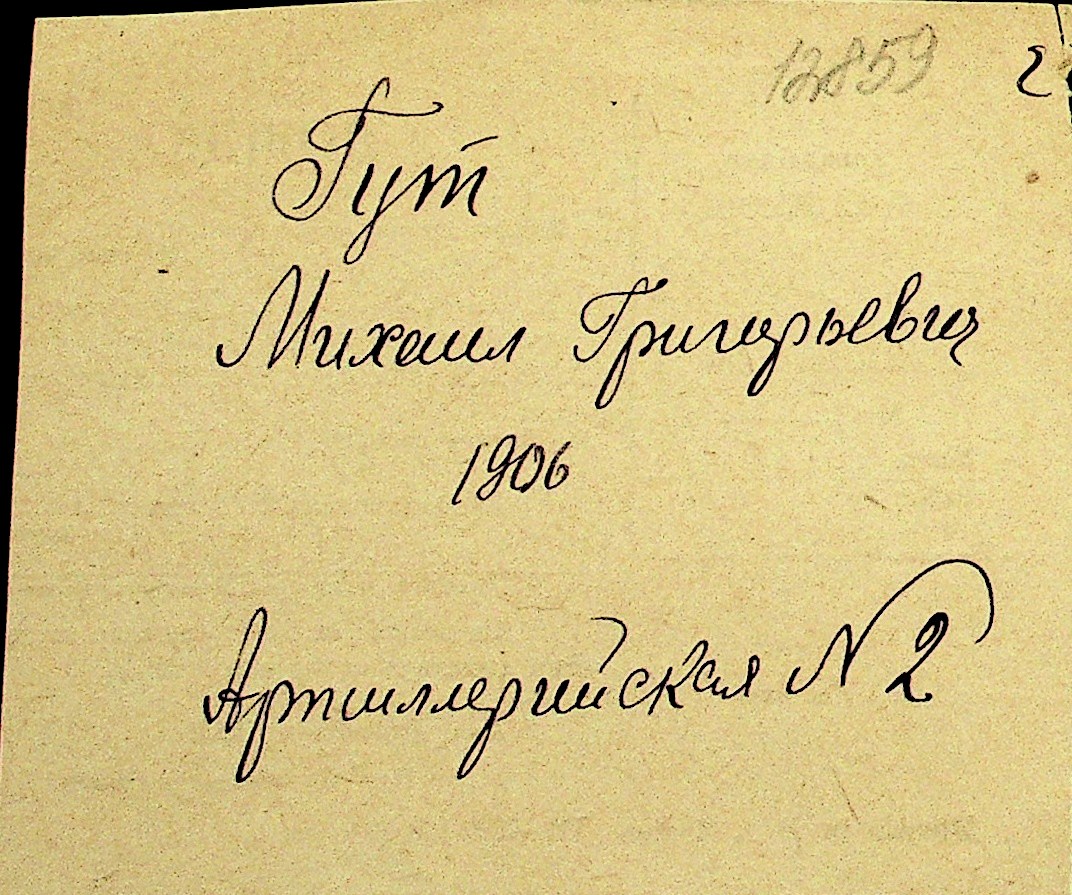 12859 2
Гут
Михаил Григорьевич
1906
Артиллерийская N 2